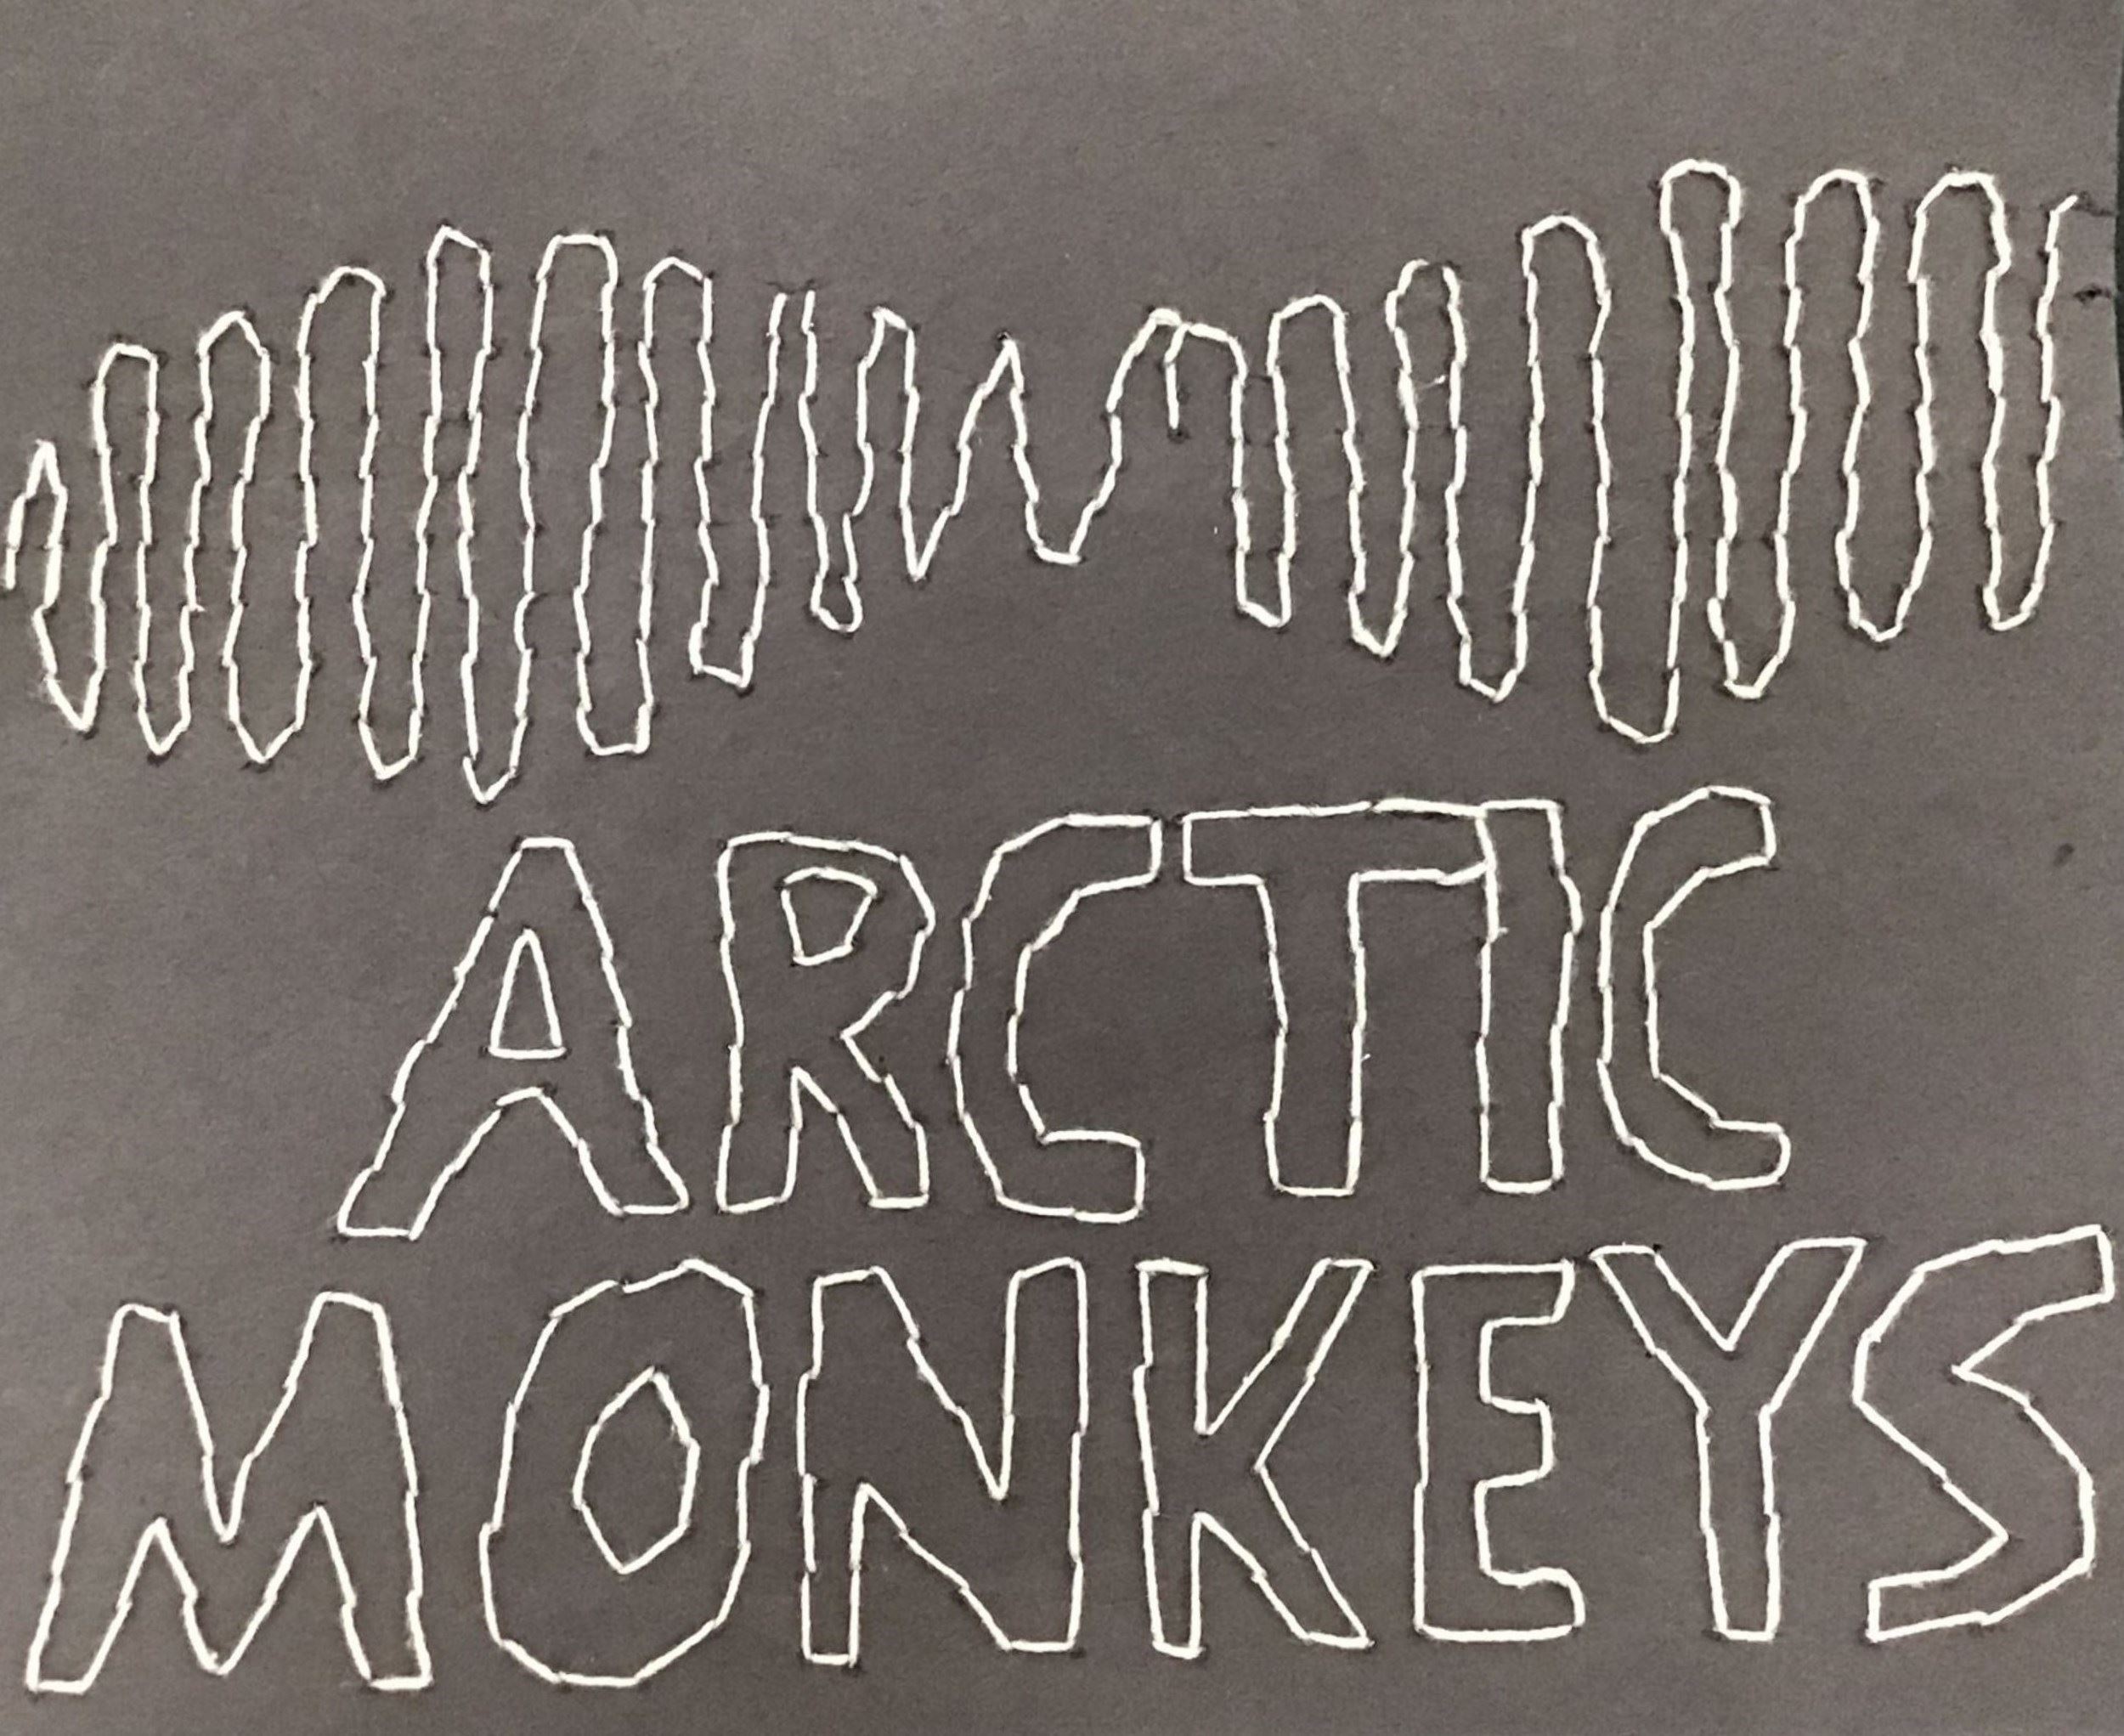 ARCTIC
MONKEYS